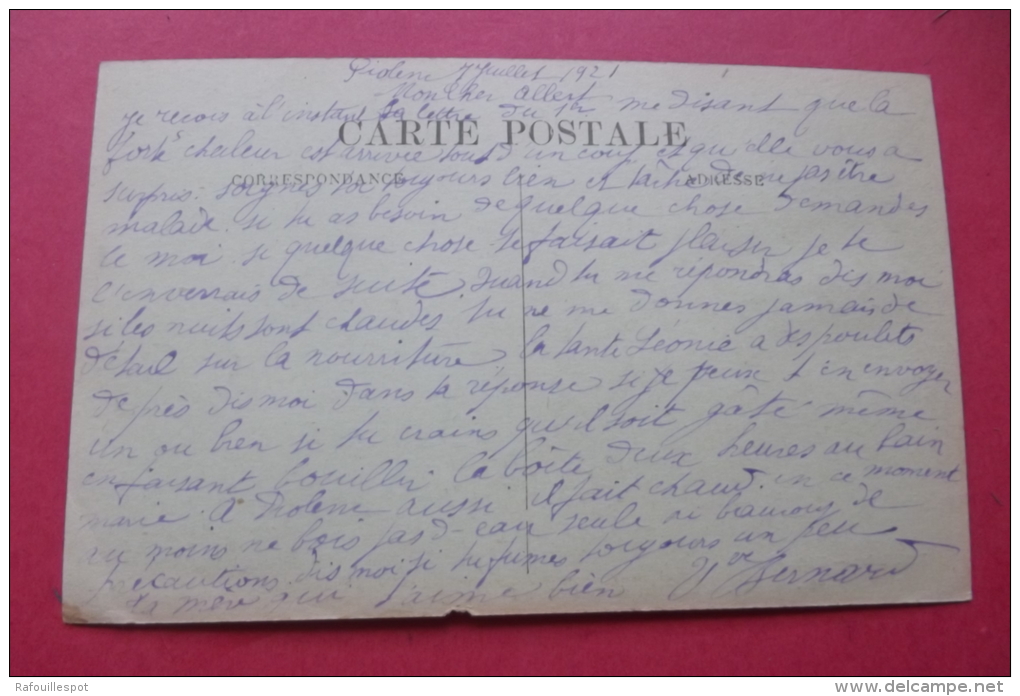 Piolenc 7 Juillet 1921
Mon cher Albert
je recois à l'instant ta lettre du 1er me disant que la
CARTE POSTALE
forte chaleur est arrivée tout d'un coup et qu'elle vous a
CORRESPONDANCE
ADRESSE
surpris. soignes toi toujours bien et tâche de ne pas être
malade. si tu as besoin de quelque chose demandes
le moi. si quelque chose te faisait plaisir je te
l'enverrais de suite. quand tu me répondras dis moi
si les nuits sont chaudes. tu ne me donnes jamais de
détail sur la nourriture. la tante Léonie a des poulets
de près dis moi dans ta réponse si je peux t'en envoyer
un ou bien si tu crains qu'il soit gâté même
en faisant bouillir la boîte deux heures au bain
marie. a Piolenc aussi il fait chaud. en ce moment
au moins ne bois pas d'eau seule ai beaucoup de
précautions. dis moi si tu fumes toujours un peu
ta mère qui t'aime bien Vve Bernard
Rafouillespot
www.delcampe.net